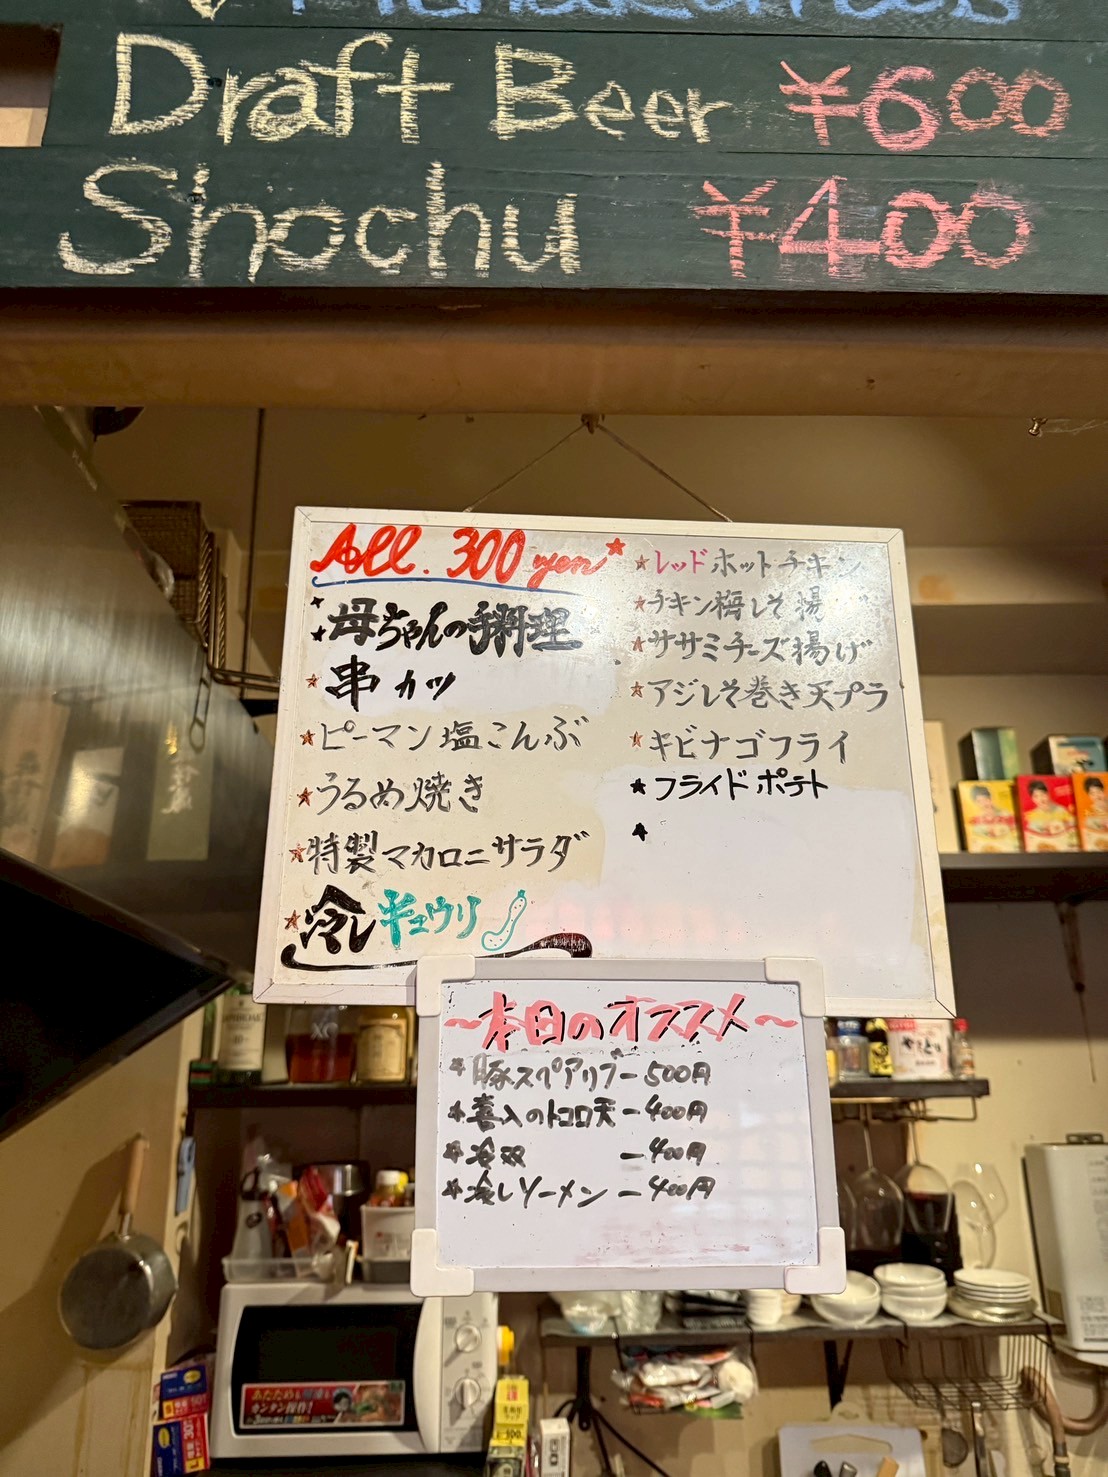 Draft Beer ¥600
Shochu ¥400
All. 300 yen
母ちゃんの手料理
串カツ
ピーマン塩こんぶ
うるめ焼き
特製マカロニサラダ
冷しキュウリ
レッドホットチキン
チキン梅しそ揚げ
ササミチーズ揚げ
アジしそ巻き天プラ
キビナゴフライ
フライドポテト
~本日のオススメ~
豚スペアリブー500円
喜入のトコロ天ー400円
冷奴 ー400円
冷しソーメンー400円
XO
カンタン操作!